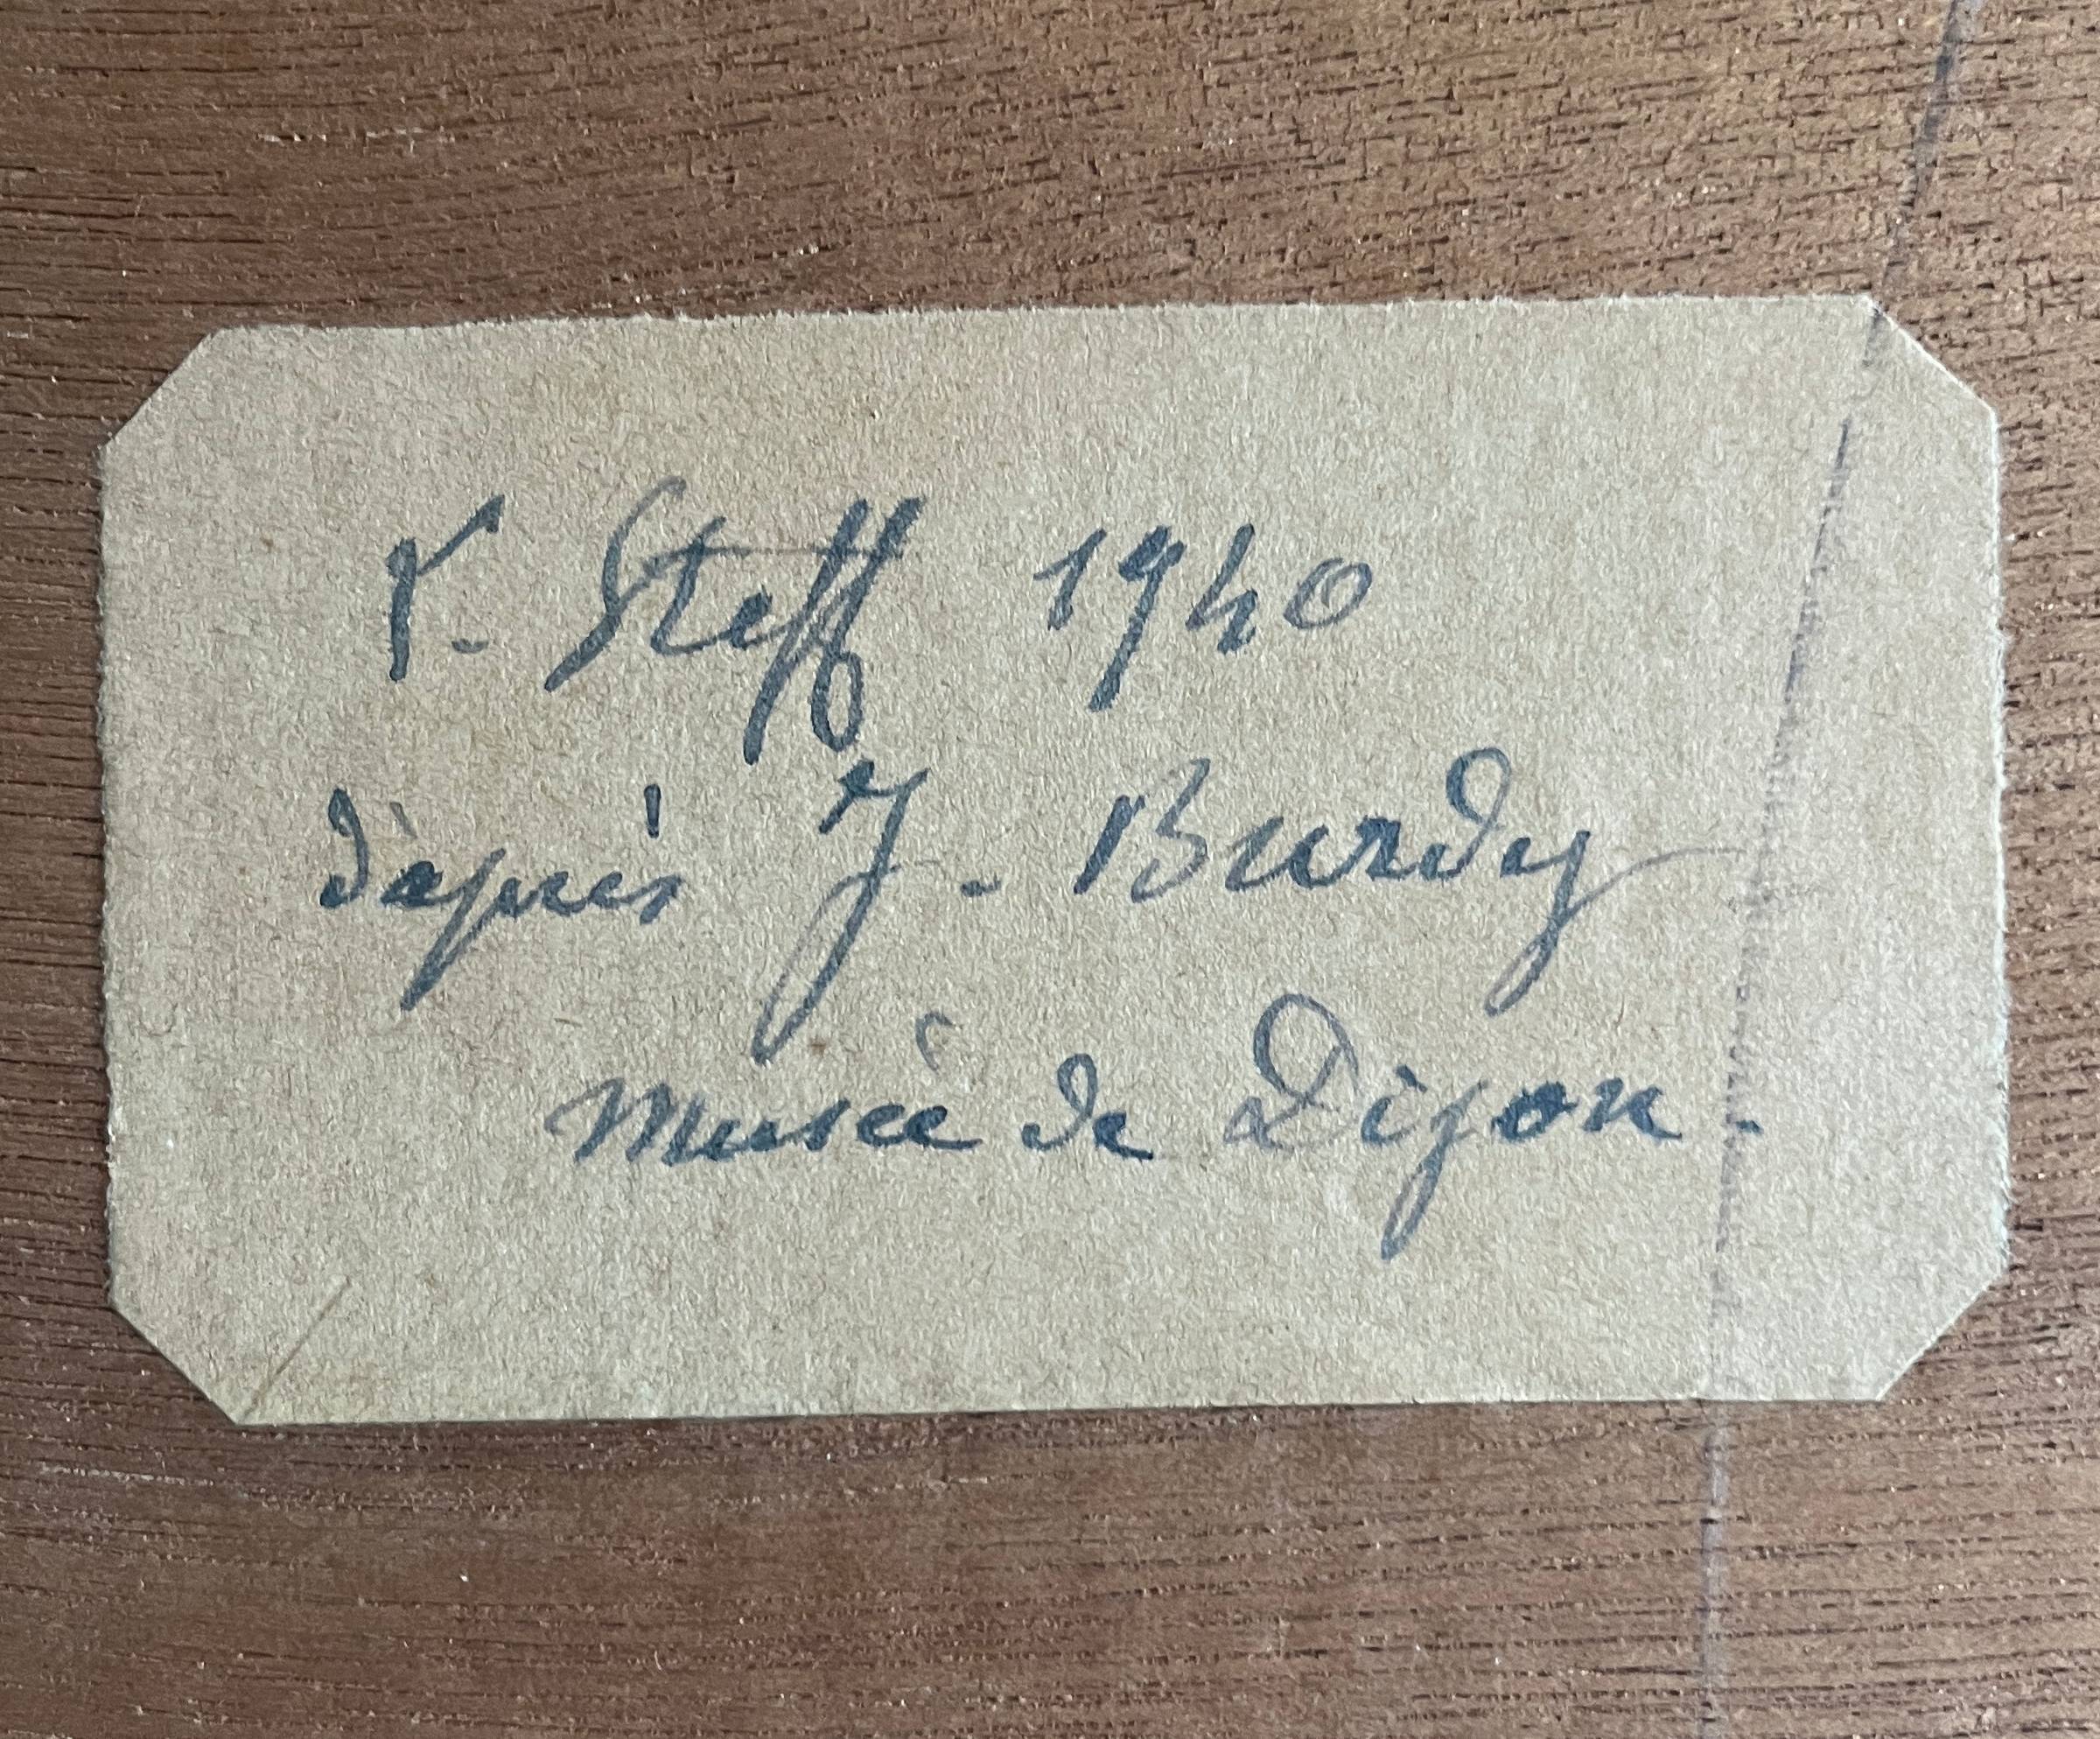 V. Steff 1940
d'après J. Burdy
Musée de Dijon.